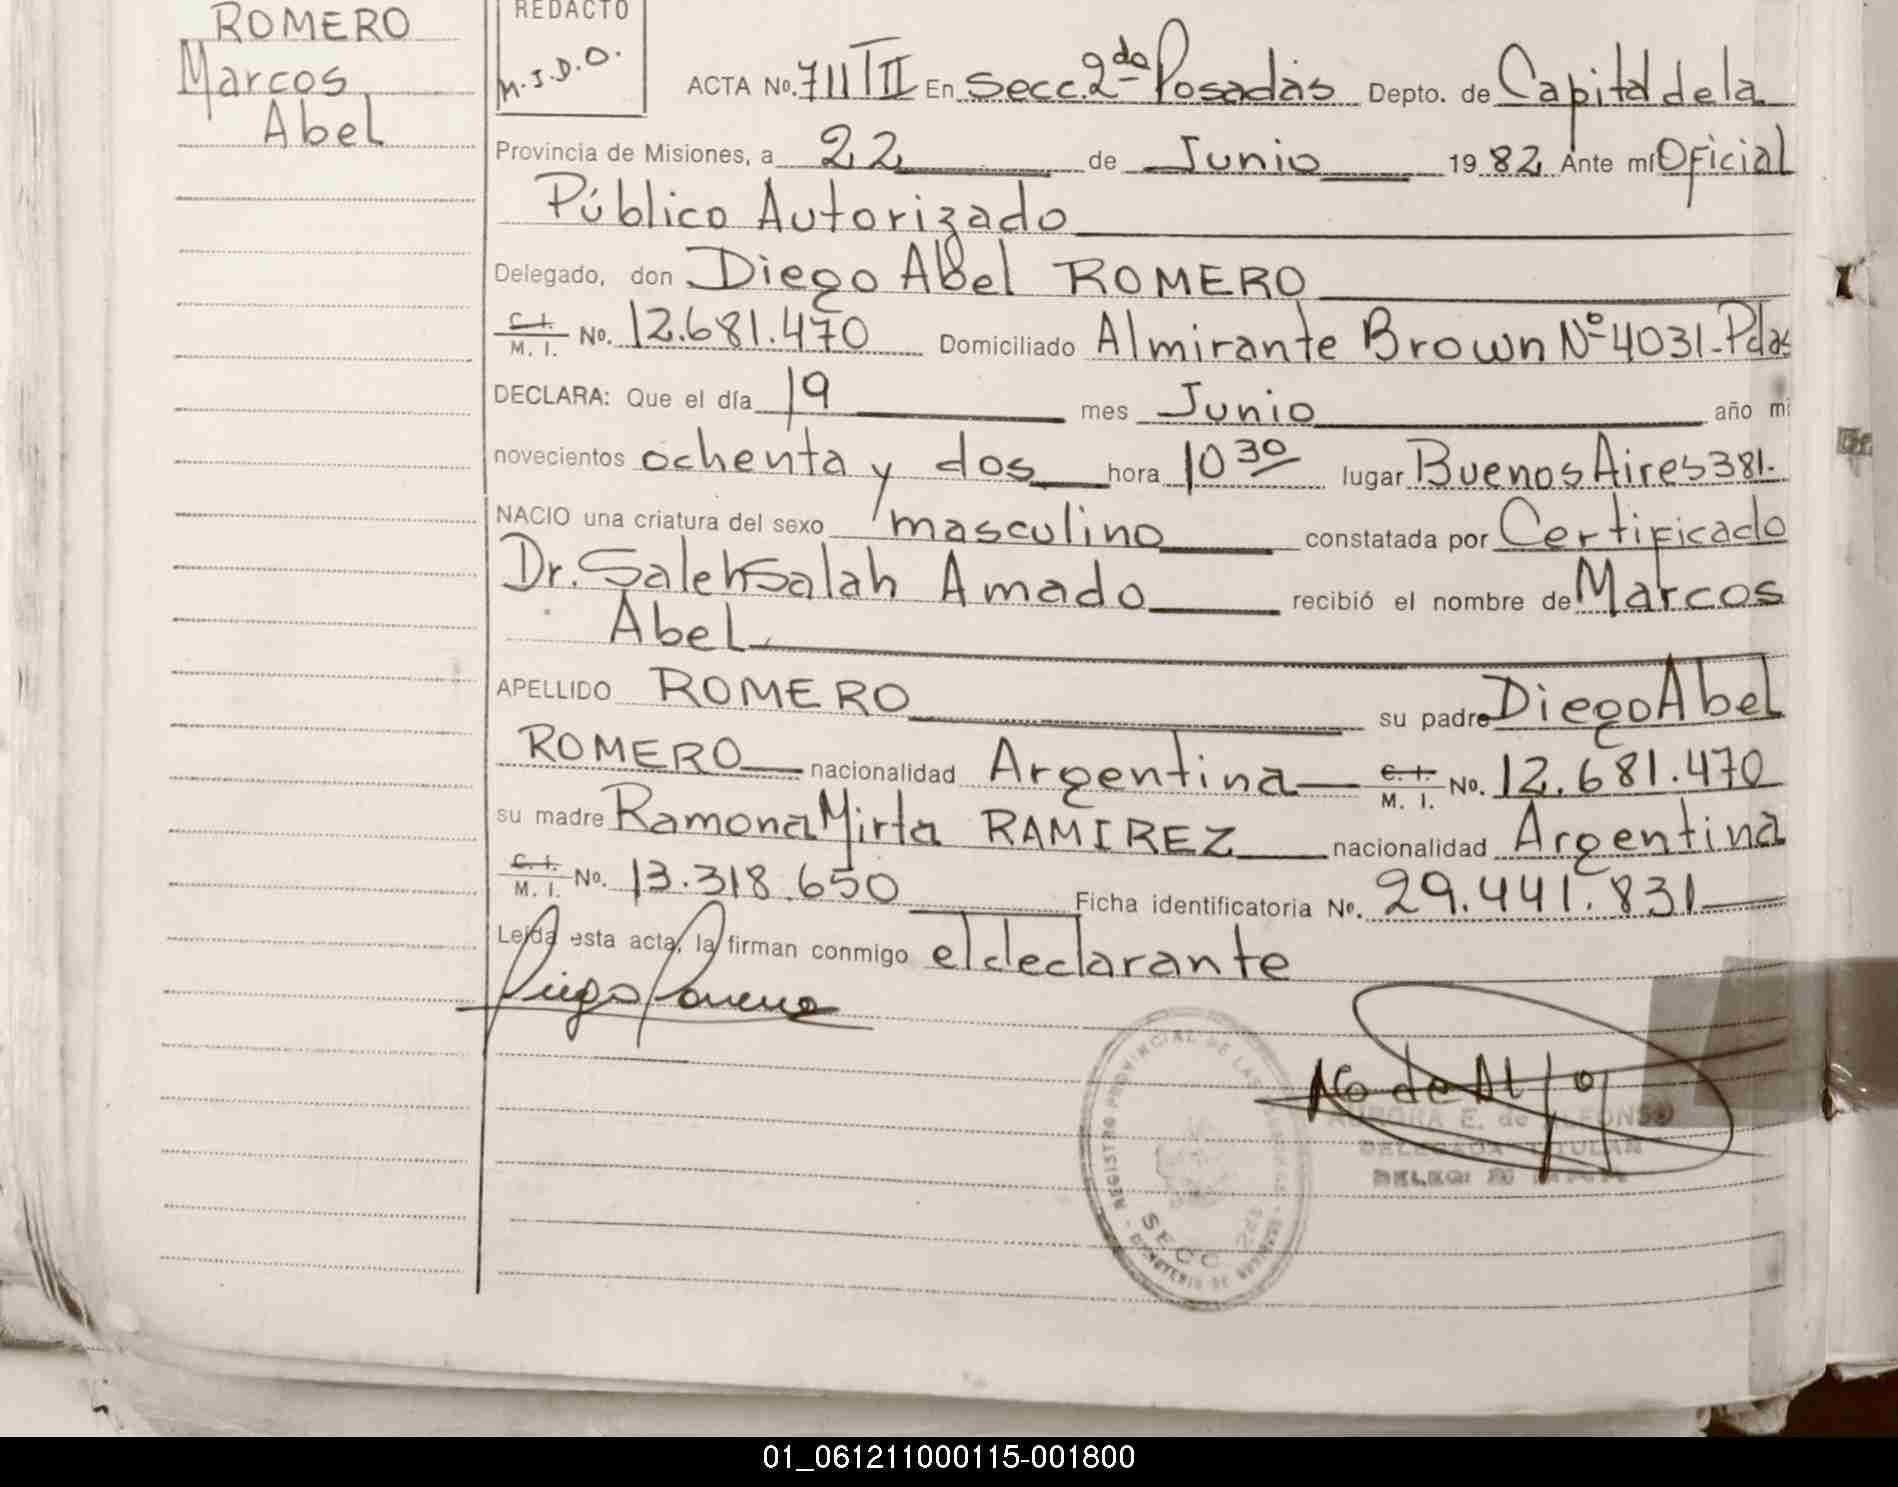 ROMERO
Marcos
Abel
REDACTO
M.J.D.O.
ACTA No. 711 TII En Secc. 2da Posadas Depto. de Capital de la
Provincia de Misiones, a 22 de Junio 19 82 Ante mí Oficial
Público Autorizado
Delegado, don Diego Abel ROMERO
C. I. M. I. No. 12.681.470 Domiciliado Almirante Brown Nº 4031-Pdas
DECLARA: Que el día 19 mes Junio año mi
novecientos ochenta y dos hora 10 30 lugar Buenos Aires 381.
NACIO una criatura del sexo masculino constatada por Certificado
Dr. Saleh Salah Amado recibió el nombre de Marcos
Abel
APELLIDO ROMERO su padre Diego Abel
ROMERO nacionalidad Argentina C. I. M. I. No. 12.681.470
su madre Ramona Mirta RAMIREZ nacionalidad Argentina
C. I. M. I. No. 13.318.650 Ficha identificatoria No. 29.441.831
Leída esta acta, la firman conmigo el declarante
REGISTRO PROVINCIAL DE LAS
SECC
E. de
DELEGADA TITULAR
01_061211000115-001800